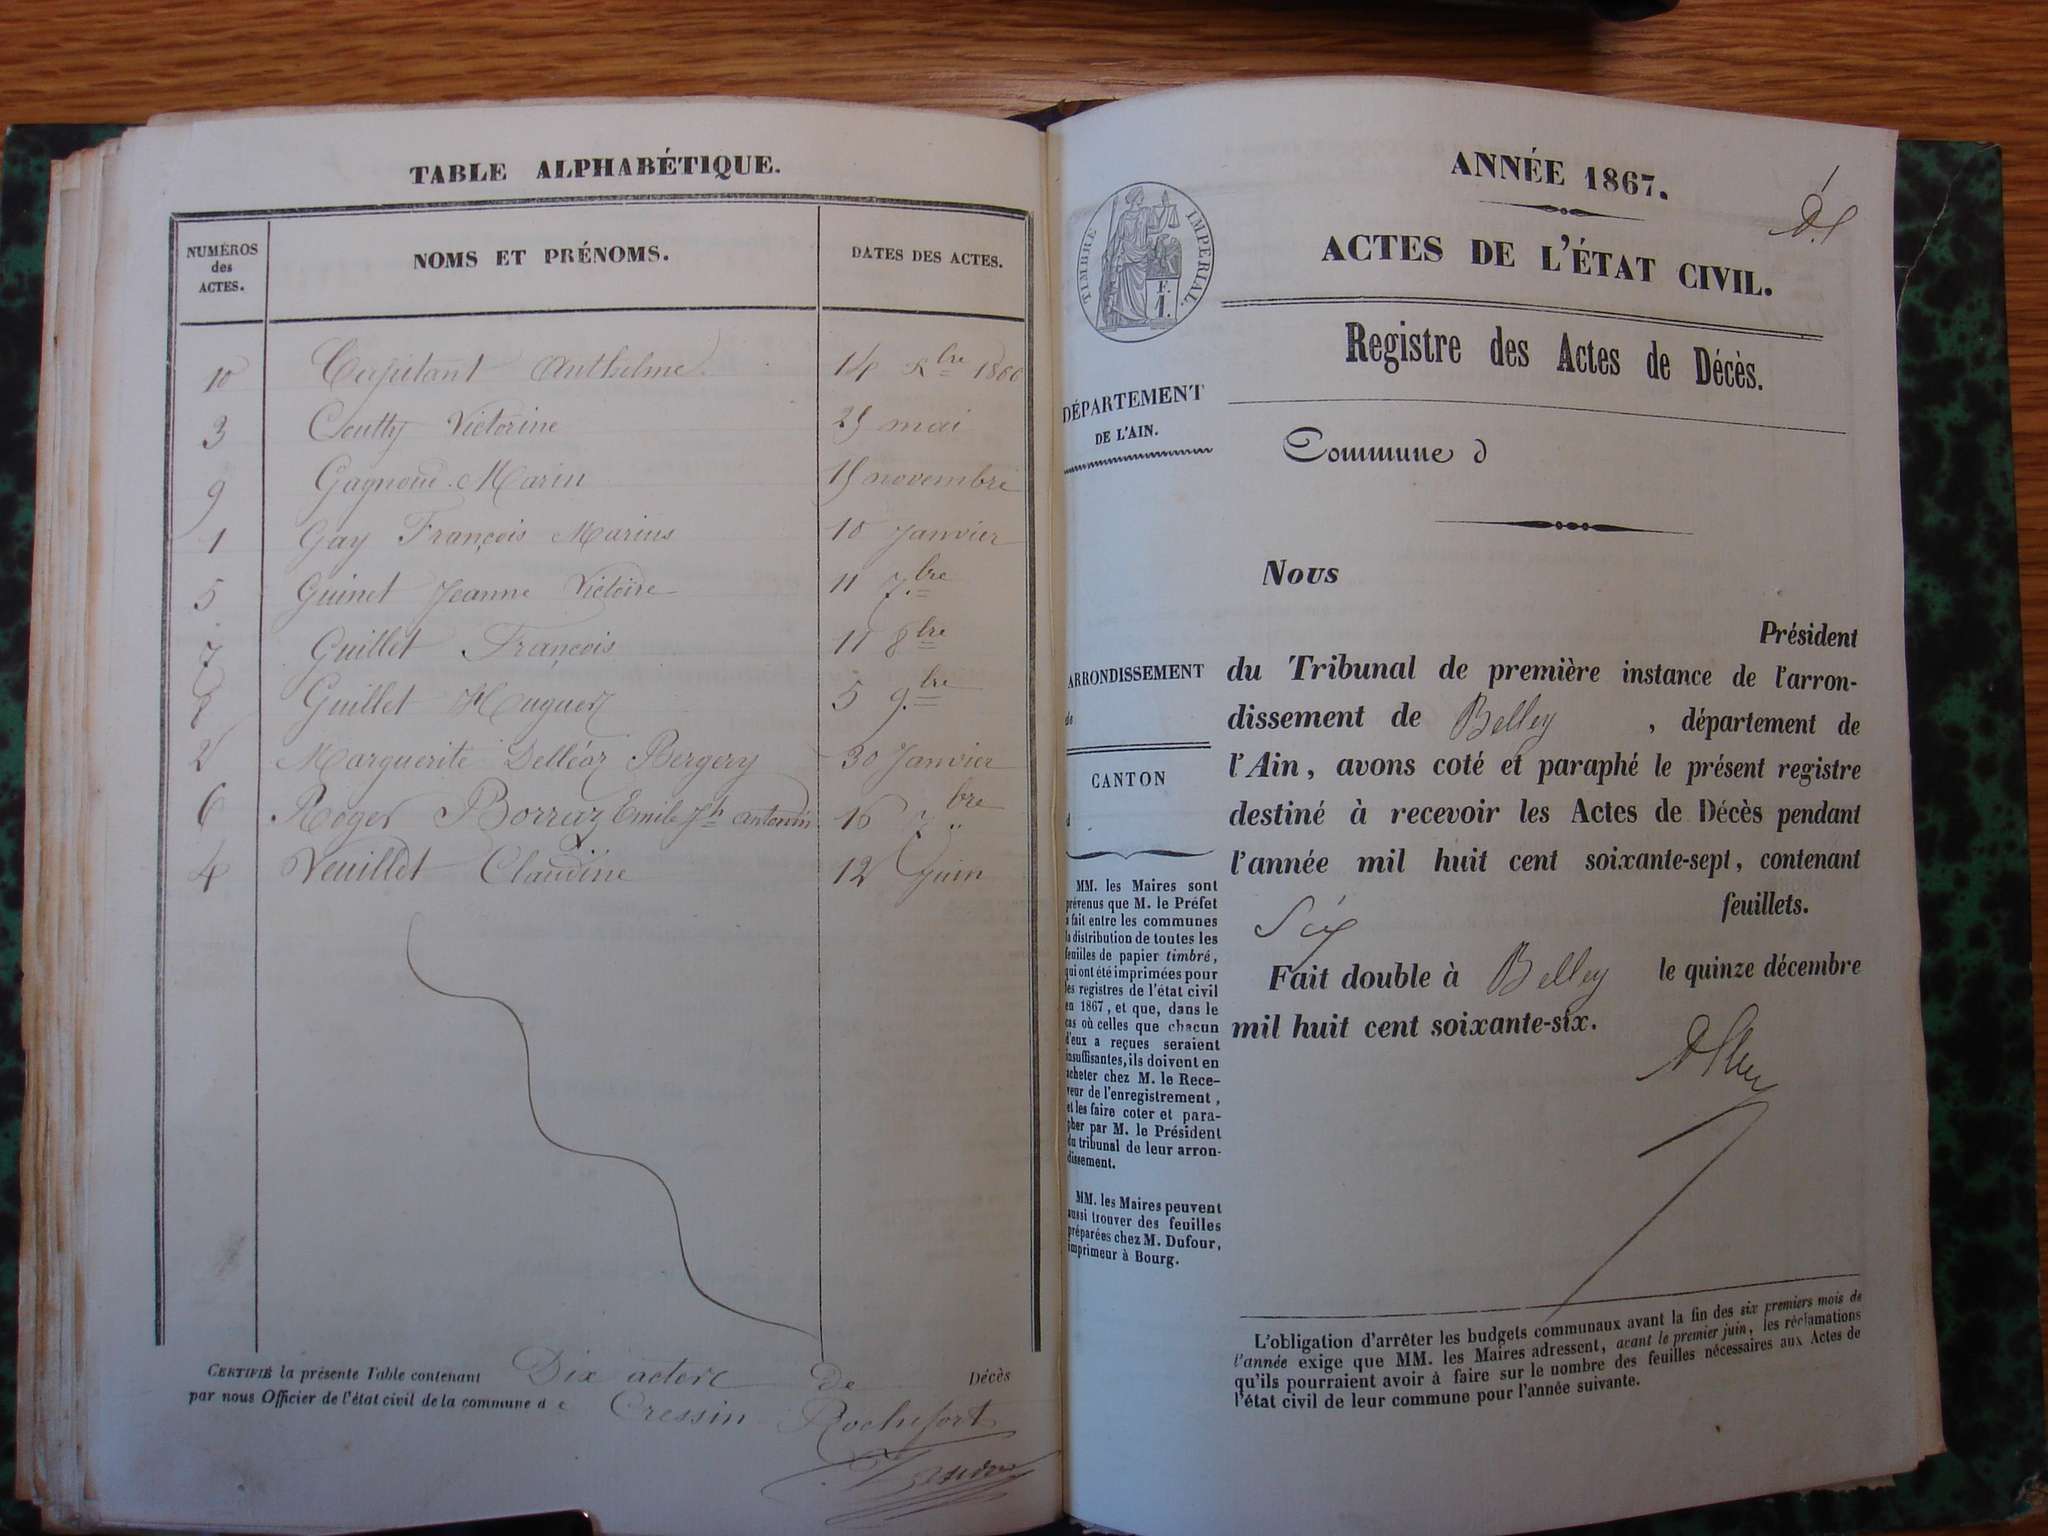 TABLE ALPHABÉTIQUE.
NUMÉROS des ACTES.
NOMS ET PRÉNOMS.
DATES DES ACTES.
10 Capitant Anthelme 14 Xbre 1866
3 Coutty Victorine 25 mai
9 Marin 15 novembre
1 Gay François Marius 10 Janvier
5 Guinet Jeanne Victoire 11 7.bre
7 Guillet François 11 8bre
8 Guillet Hugues 5 9.bre
2 Marguerite Bergery 30 Janvier
6 Roger Borruz Emile Jh antonin 16 7bre
4 Veuillet Claudine 12 Juin
CERTIFIÉ la présente Table contenant Dix actes de Décès
par nous Officier de l'état civil de la commune de Cressin Rochefort
ANNÉE 1867.
ACTES DE L'ÉTAT CIVIL.
TIMBRE IMPERIAL.
Registre des Actes de Décès.
DÉPARTEMENT
DE L'AIN.
Commune d
Nous
Président
du Tribunal de première instance de l'arron-
dissement de Belley , département de
l'Ain, avons coté et paraphé le présent registre
destiné à recevoir les Actes de Décès pendant
l'année mil huit cent soixante-sept, contenant
Six feuillets.
Fait double à Belley le quinze décembre
mil huit cent soixante-six.
ARRONDISSEMENT
de
CANTON
d
MM. les Maires sont
prévenus que M. le Préfet
a fait entre les communes
la distribution de toutes les
feuilles de papier timbré,
qui ont été imprimées pour
les registres de l'état civil
en 1867, et que, dans le
cas où celles que chacun
d'eux a reçues seraient
insuffisantes, ils doivent en
acheter chez M. le Rece-
veur de l'enregistrement,
et les faire coter et para-
pher par M. le Président
du tribunal de leur arron-
dissement.
MM. les Maires peuvent
aussi trouver des feuilles
préparées chez M. Dufour,
imprimeur à Bourg.
L'obligation d'arrêter les budgets communaux avant la fin des six premiers mois de
l'année exige que MM. les Maires adressent, avant le premier juin, les réclamations
qu'ils pourraient avoir à faire sur le nombre des feuilles nécessaires aux Actes de
l'état civil de leur commune pour l'année suivante.